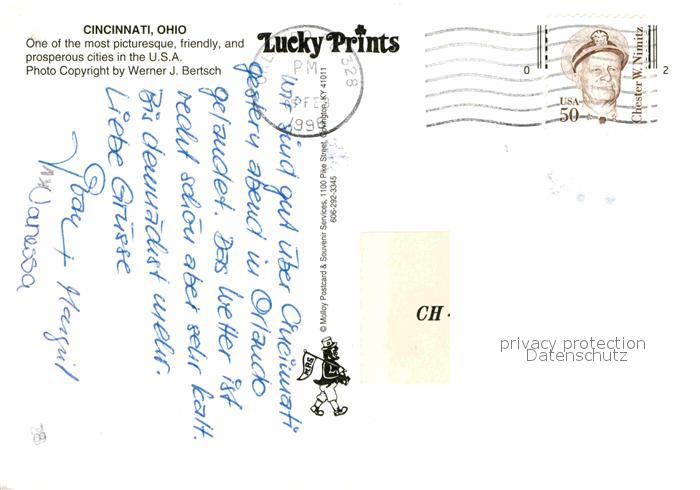 CINCINNATI, OHIO
One of the most picturesque, friendly, and
prosperous cities in the U.S.A.
Photo Copyright by Werner J. Bertsch
Lucky Prints
PM
328
1996
USA
50
Chester W. Nimitz
0
2
Wir sind gut über Cincinnati
gestern abend in Orlando
gelandet. Das Wetter ist
recht schön aber sehr kalt.
Bis demnächst mehr.
Liebe Grüsse
+ Margrit
Vanessa
© Molloy Postcard & Souvenir Services, 1100 Pike Street, Covington, KY 41011
606-292-3345
CH -
privacy protection
Datenschutz